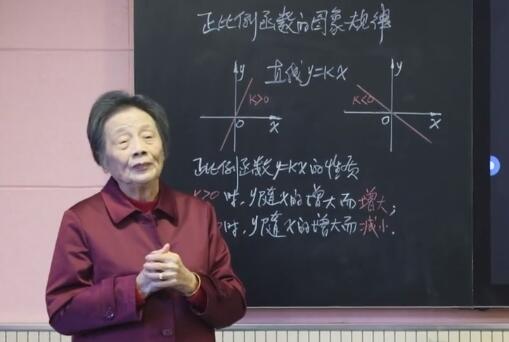 正比例函数的图象规律
直线y=kx
y
k>0
0
x
y
k<0
0
x
正比例函数y=kx的性质
k>0时,y随x的增大而增大;
时,y随x的增大而减小.